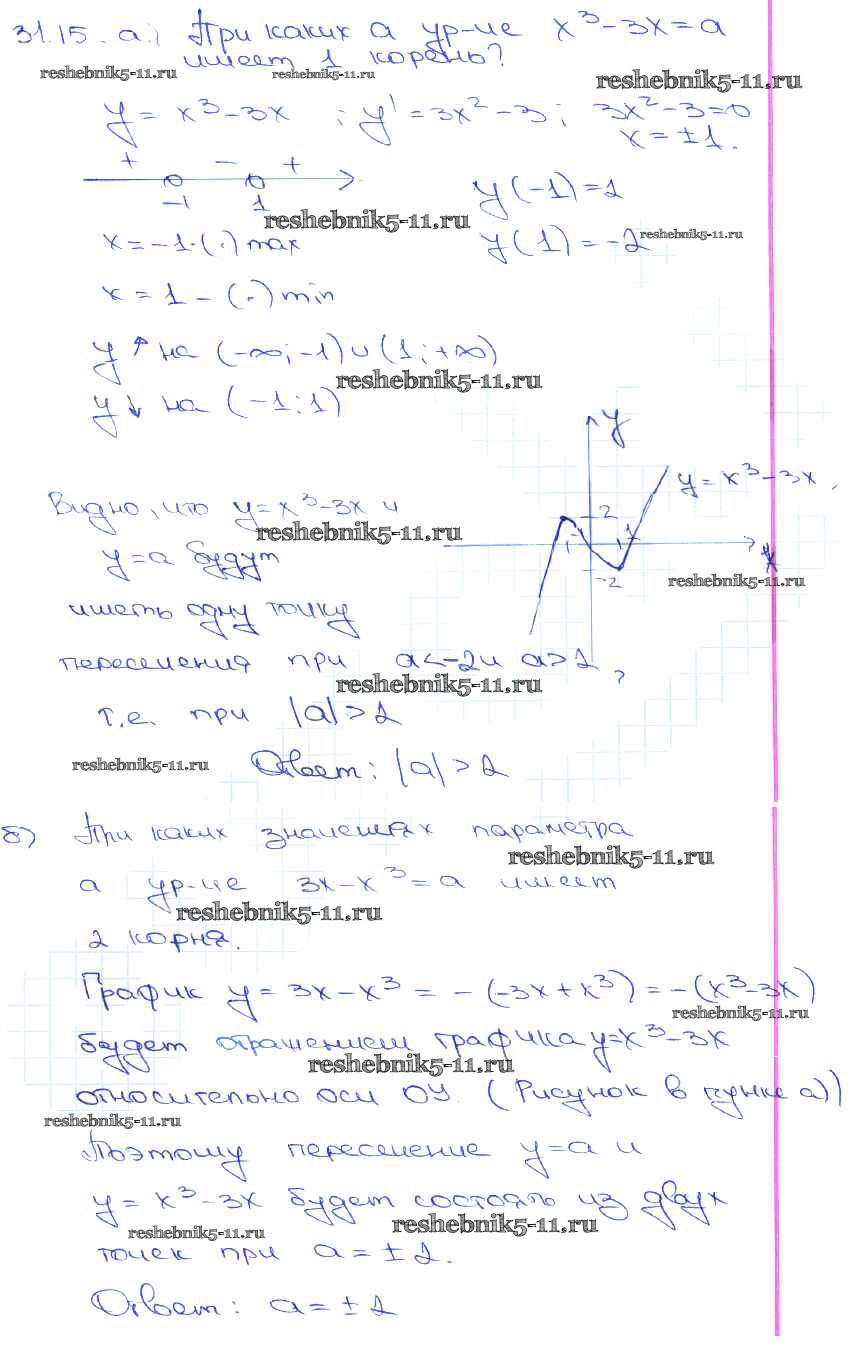 31.15. а.) При каких а ур-ие x³-3x=a
имеет 1 корень?
reshebnik5-11.ru reshebnik5-11.ru reshebnik5-11.ru
y = x³-3x ; y' = 3x²-3; 3x²-3=0
x = ±1.
+ - +
-1 1
y(-1)=2
reshebnik5-11.ru
x=-1-(·) max y(1)=-2 reshebnik5-11.ru
x = 1 - (·) min
y ↑ на (-∞; -1)∪(1; +∞)
reshebnik5-11.ru
y ↓ на (-1; 1)
y
y = x³-3x,
Видно, что y=x³-3x и
2
reshebnik5-11.ru
-1 1
x
y=a будут
-2
reshebnik5-11.ru
иметь одну точку
пересечения при a<-2 и a>2,
reshebnik5-11.ru
т.е. при |a|>2
reshebnik5-11.ru
Ответ: |a|>2
б) При каких значениях параметра
reshebnik5-11.ru
а ур-ие 3x-x³=a имеет
reshebnik5-11.ru
2 корня.
График y = 3x-x³ = -(-3x+x³) = -(x³-3x)
reshebnik5-11.ru
будет отражением графика y=x³-3x
reshebnik5-11.ru
относительно оси OY. (Рисунок в пунке а))
reshebnik5-11.ru
Поэтому пересечение y=a и
y = x³-3x будет состоять из двух
reshebnik5-11.ru reshebnik5-11.ru
точек при a=±2.
Ответ: a=±2